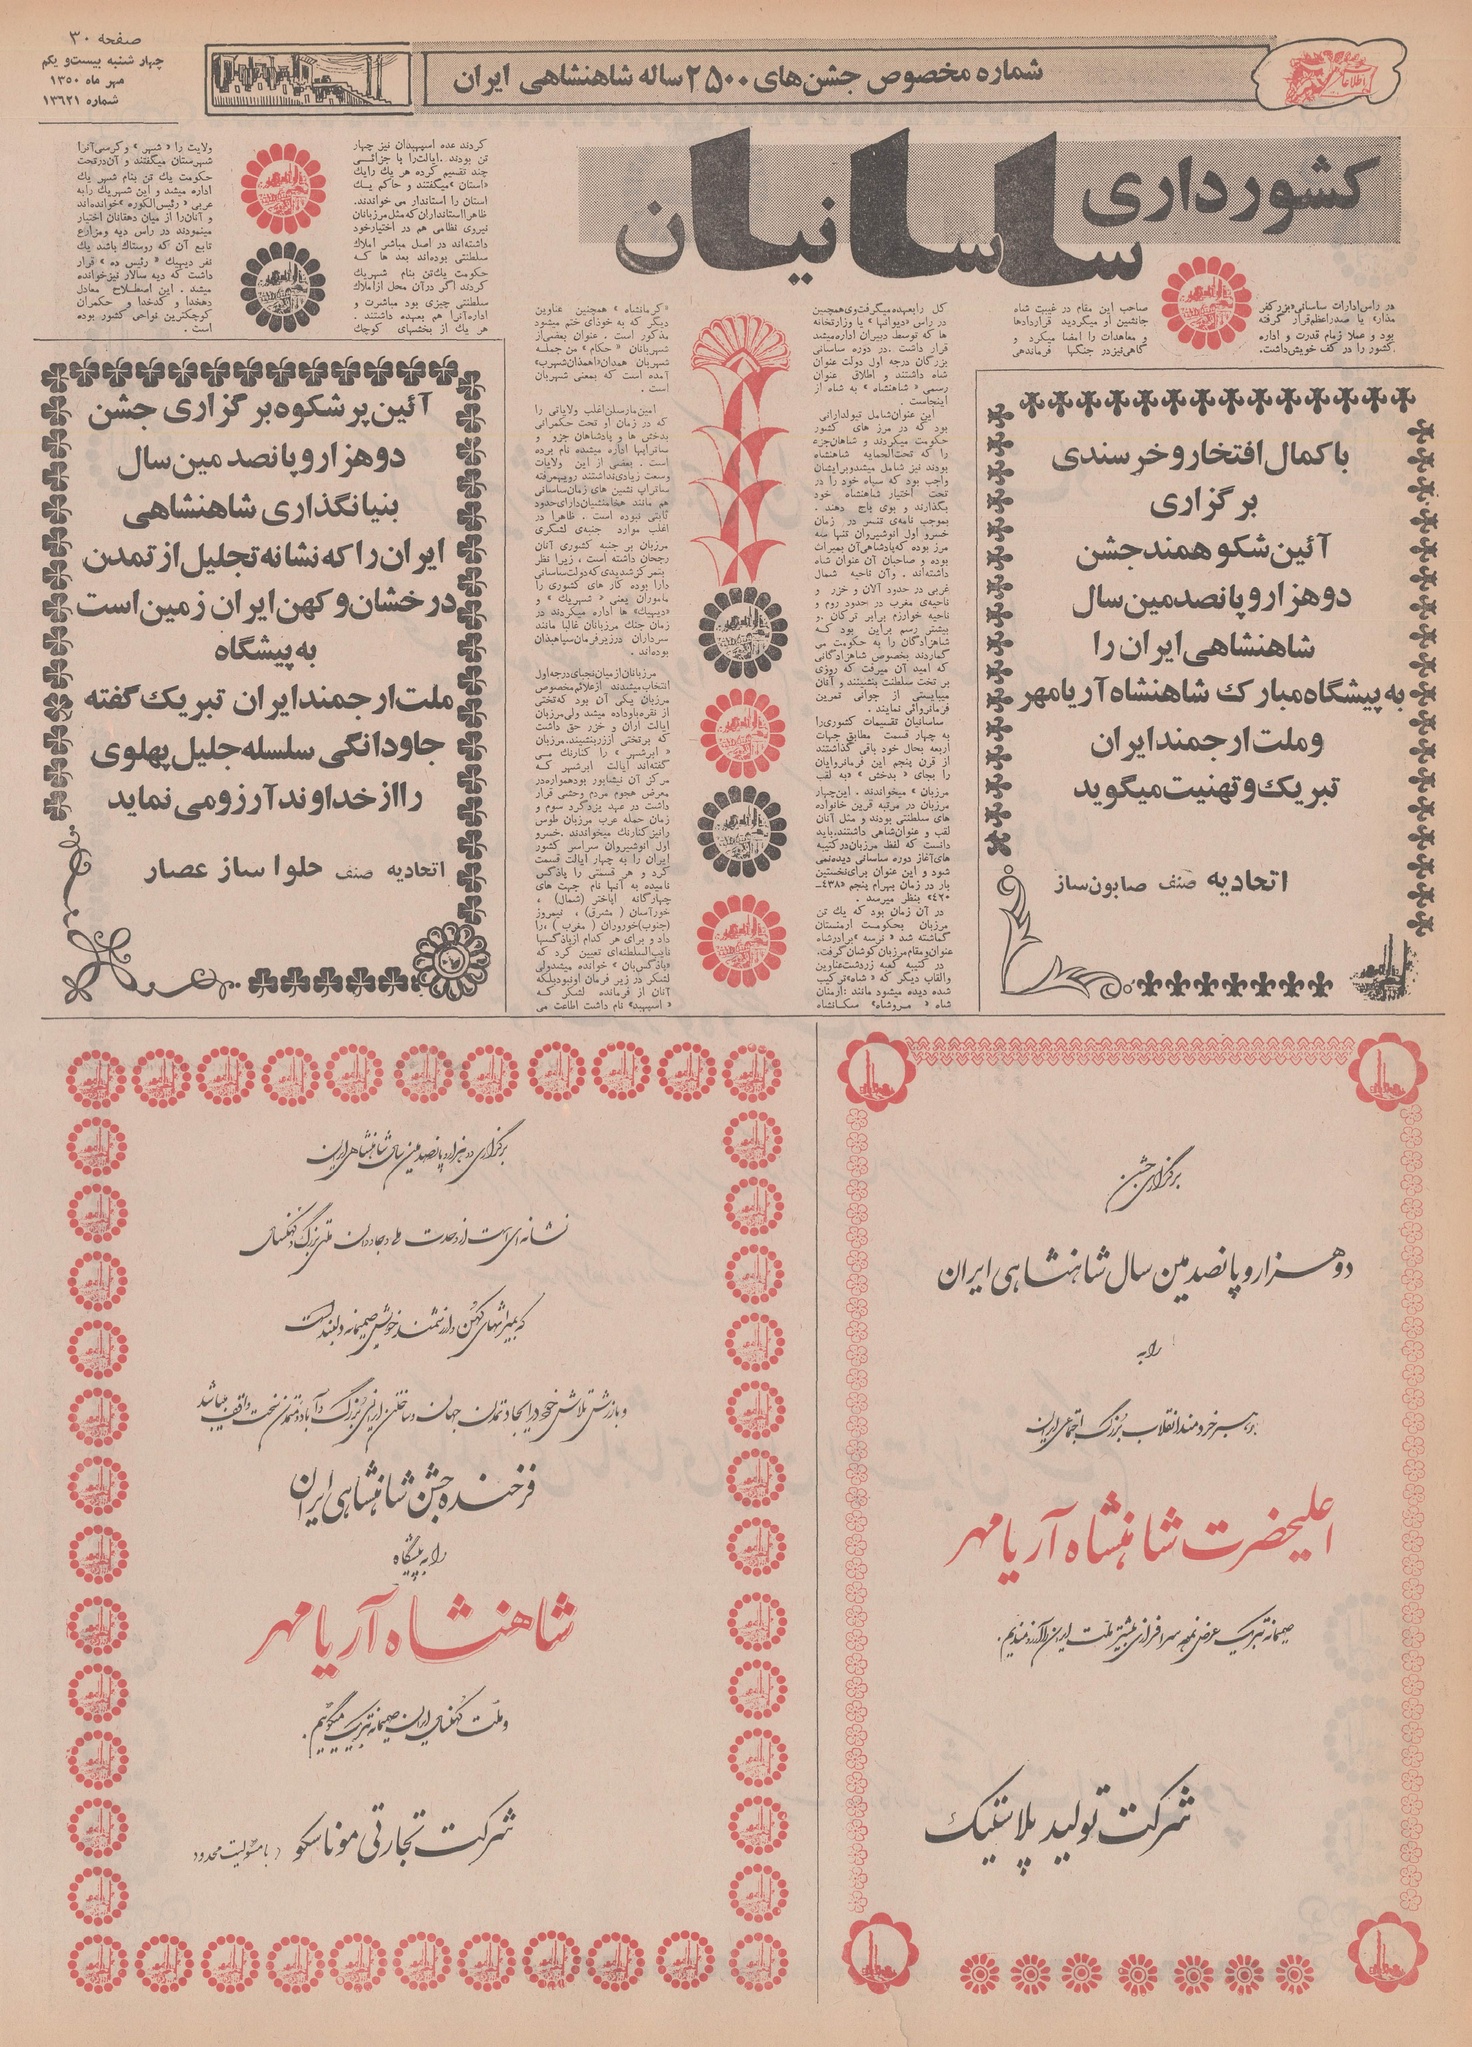 صفحه ۳۰
چهار شنبه بیست‌و یکم
مهر ماه ۱۳۵۰
شماره ۱۳۶۲۱
شماره مخصوص جشن‌های ۲۵۰۰ ساله شاهنشاهی ایران
اطلاعات
کشورداری
ساسانیان
در راس ادارات ساسانی «بزرگفر
مذار» یا صدراعظم قرار گرفته
بود و عملا زمام قدرت و اداره
کشور را در کف خویش داشت.
صاحب این مقام در غیبت شاه
جانشین او میگردید قراردادها
و معاهدات را امضا میکرد و
گاهی نیز در جنگها فرماندهی
کل را بعهده میگرفت وی همچنین
در راس «دیوانها» یا وزارتخانه
ها که توسط دبیران اداره میشد
قرار داشت. در دوره ساسانی
بزرگان درجه اول دولت عنوان
شاه داشتند و اطلاق عنوان
رسمی «شاهنشاه» به شاه از
اینجاست.
این عنوان شامل تیولدارانی
بود که در مرز های کشور
حکومت میکردند و شاهان جزء
را که تحت‌الحمایه شاهنشاه
بودند نیز شامل میشد و برایشان
واجب بود که سپاه خود را در
تحت اختیار شاهنشاه خود
بگذارند و بوی باج دهند.
بموجب نامه‌ی تنسر در زمان
خسرو اول انوشیروان تنها سه
مرز بوده که پادشاهی آن بمیراث
بوده و صاحبان آن عنوان شاه
داشته‌اند. وآن ناحیه شمال
غربی در حدود آلان و خزر و
ناحیه‌ی مغرب در حدود روم و
ناحیه خوارزم برابر ترکان. و
بیشتر رسم براین بود که
شاهزادگان را به حکومت می
گماردند بخصوص شاهزادگانی
که امید آن میرفت که روزی
بر تخت سلطنت بنشینند و آنان
میبایستی از جوانی تمرین
فرمانروائی نمایند.
ساسانیان تقسیمات کشوری را
به چهار قسمت مطابق جهات
اربعه بحال خود باقی گذاشتند
از قرن پنجم این فرمانروایان
را بجای «بدخش» «به لقب
مرزبان» میخواندند. این چهار
مرزبان در مرتبه قرین خانواده
های سلطنتی بودند و مثل آنان
لقب و عنوان شاهی داشتند. باید
دانست که لفظ مرزبان در کتیبه
های آغاز دوره ساسانی دیده نمی
شود و این عنوان برای نخستین
بار در زمان بهرام پنجم «۴۳۸-
۴۲۰» بنظر میرسد.
در آن زمان بود که یك تن
مرزبان بحکومت ارمنستان
گماشته شد «نرسه» برادر شاه
عنوان و مقام مرزبان کوشان گرفت.
در کتیبه کعبه زردشت عناوین
و القاب دیگر که «شاه» ترکیب
شده دیده میشود مانند: ارمنان
شاه «مروشاه» سکانشاه
«کرمانشاه» همچنین عناوین
دیگر که به خودای ختم میشود
مذکور است. عنوان بعضی از
شهربانان «حکام» من جمله
شهربان همدان «اهمدان شهرب»
آمده است که بمعنی شهربان
است.
امین مارسلن اغلب ولایاتی را
که در زمان او تحت حکمرانی
بدخش ها و پادشاهان جزو و
ساتراپها اداره میشده نام برده
است. بعضی از این ولایات
وسعت زیادی نداشتند رویهمرفته
ساتراپ نشین های زمان ساسانی
هم مانند هخامنشیان دارای حدود
ثابتی نبوده است. ظاهرا در
اغلب موارد جنبه‌ی لشگری
مرزبان بر جنبه کشوری آنان
رجحان داشته است، زیرا نظر
بتمرکز شدیدی که دولت ساسانی
دارا بوده کار های کشوری را
ماموران یعنی «شهریك» و
«دیهیك» ها اداره میکردند در
زمان جنك مرزبانان غالبا مانند
سرداران در زیر فرمان سپاهبدان
بوده‌اند.
مرزبانان از میان نجبای درجه اول
انتخاب میشدند از علائم مخصوص
مرزبان یکی آن بود که تختی
از نقره باو داده میشد ولی مرزبان
ایالت اران و خزر حق داشت
که بر تختی از زر بنشیند. مرزبان
«ابرشهر» را کنارنك می
گفته‌اند ایالت ابرشهر که
مرکز آن نیشابور بود همواره در
معرض هجوم مردم وحشی قرار
داشت در عهد یزدگرد سوم و
زمان حمله عرب مرزبان طوس
رانیز کنارنك میخواندند. خسرو
اول انوشیروان سراسر کشور
ایران را به چهار ایالت قسمت
کرد و هر قسمتی را پاذکس
نامیده به آنها نام جهت های
چهارگانه اپاختر (شمال)،
خورآسان (مشرق)، نیمروز
(جنوب) خوروران (مغرب)، را
داد و برای هر کدام از پاذکسها
نایب‌السلطنه‌ای تعیین کرد که
«پاذکس‌بان» خوانده میشد ولی
لشکر در زیر فرمان او نبود بلکه
آنان از فرمانده لشکر که
«اسپهبد» نام داشت اطاعت می
کردند عده اسپهبدان نیز چهار
تن بودند. ایالت را با جزائی
چند تقسیم کرده هر یك رایك
«استان» میگفتند و حاکم یك
استان را استاندار می خواندند.
ظاهرا استانداران که مثل مرزبانان
نیروی نظامی هم در اختیار خود
داشته‌اند در اصل مباشر املاك
سلطنتی بوده‌اند بعد ها که
حکومت یك‌تن بنام شهریك
کردند اگر در آن محل از املاك
سلطنتی چیزی بود مباشرت و
اداره آنرا هم بعهده داشتند.
هر یك از بخشهای کوچك
ولایت را «شهر» و کرسی آنرا
شهرستان میگفتند و آن در تحت
حکومت یك تن بنام شهر یك
اداره میشد و این شهریك را به
عربی «رئیس الکوره» خوانده‌اند
و آنان را از میان دهقانان اختیار
مینمودند در راس دیه و مزارع
تابع آن که روستاك باشد یك
نفر دیهیك «رئیس ده» قرار
داشت که دیه سالار نیز خوانده
میشد. این اصطلاح معادل
دهخدا و کدخدا و حکمران
کوچکترین نواحی کشور بوده
است.
باکمال افتخار و خرسندی
برگزاری
آئین شکوهمند جشن
دوهزار و پانصدمین سال
شاهنشاهی ایران را
به پیشگاه مبارك شاهنشاه آریامهر
و ملت ارجمند ایران
تبریك و تهنیت میگوید
اتحادیه صنف صابون ساز
آئین پر شکوه برگزاری جشن
دوهزار و پانصدمین سال
بنیانگذاری شاهنشاهی
ایران را که نشانه تجلیل از تمدن
درخشان و کهن ایران زمین است
به پیشگاه
ملت ارجمند ایران تبریك گفته
جاودانگی سلسله جلیل پهلوی
را از خداوند آرزو می نماید
اتحادیه صنف حلوا ساز عصار
برگزاری جشن
دوهزار و پانصدمین سال شاهنشاهی ایران
را به
رهبر خردمند انقلاب بزرگ اجتماعی ایران
اعلیحضرت شاهنشاه آریامهر
صمیمانه تبریک عرض نموده سرافرازی بیشتر ملت ایران را آرزومندیم.
شرکت تولید پلاستیک
برگزاری دوهزار و پانصدمین سال شاهنشاهی ایران
نشانه‌ای است از وحدت ها و جاودان ملتی بزرگ و کهنسال
که بمیراثهای کهن و ارزشمند خویش صمیمانه دلبند است
و بارزش تلاش خود در ایجاد تمدن جهان و ساختن ایرانی بزرگ و آباد و متمدن سخت واقف میباشد
فرخنده جشن شاهنشاهی ایران
را به پیشگاه
شاهنشاه آریامهر
و ملت کهنسال ایران صمیمانه تبریک میگوئیم.
شرکت تجارتی موناسکو (با مسئولیت محدود)